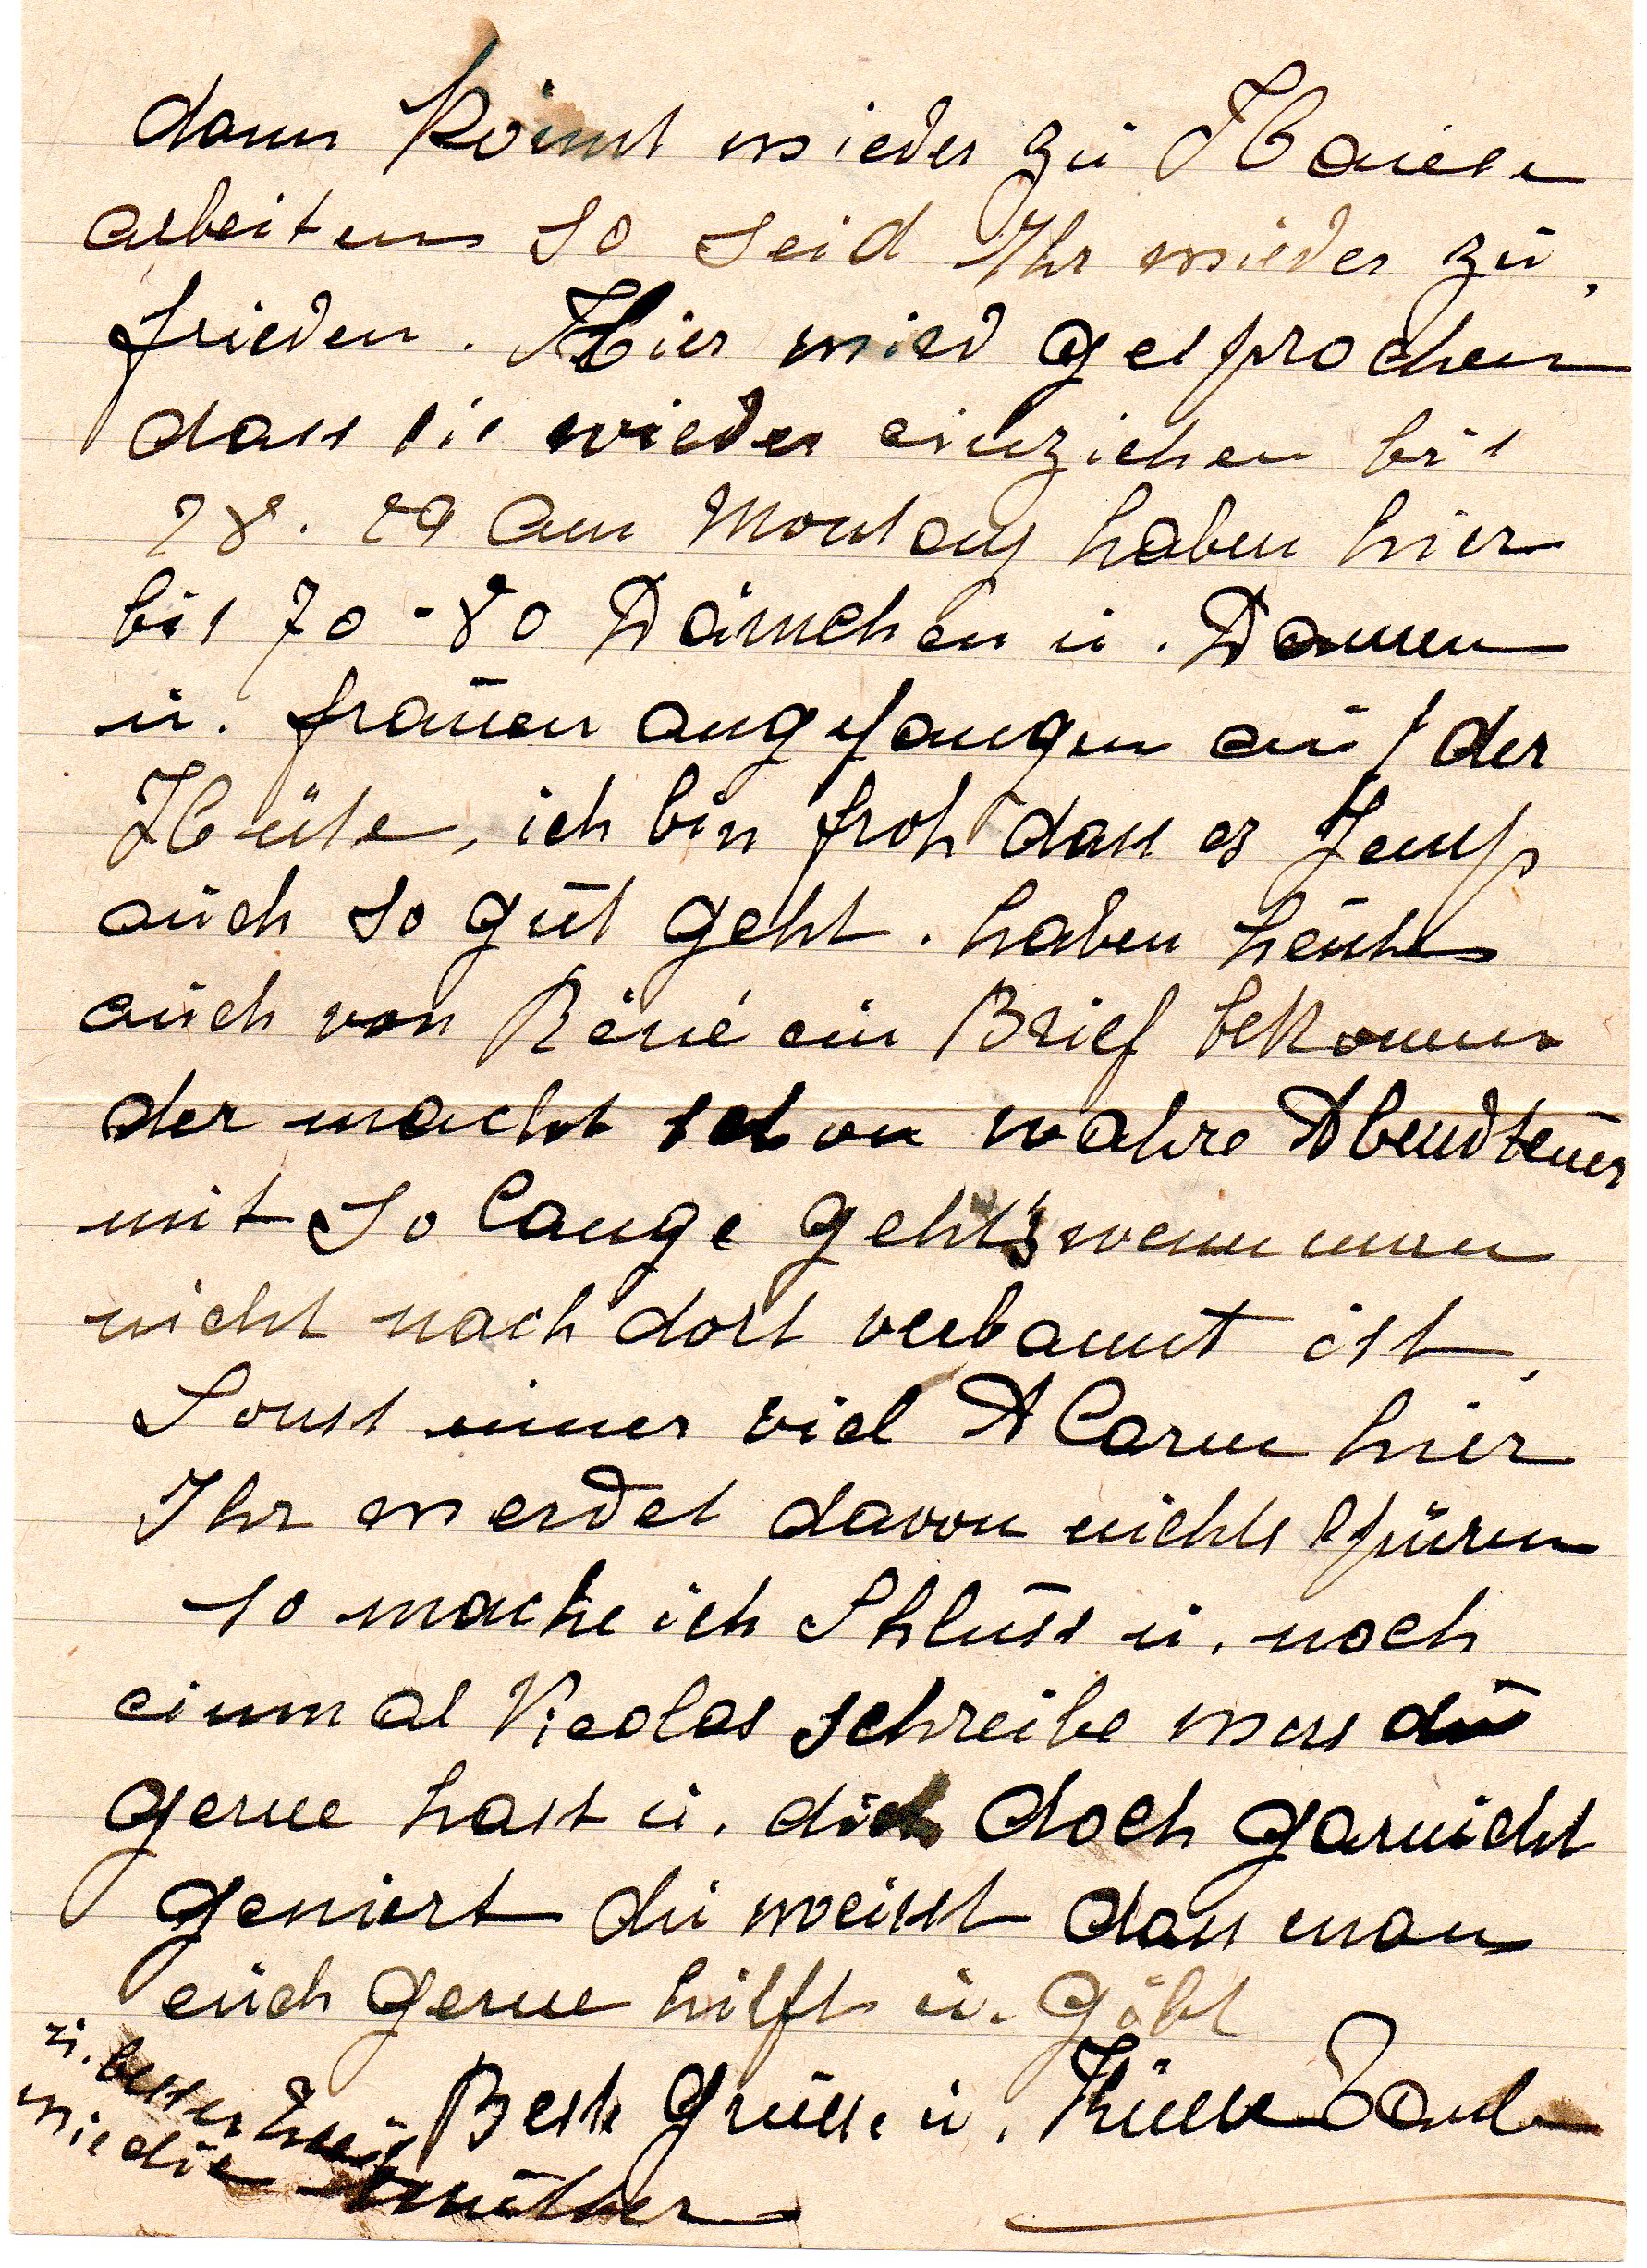 dann könnt wieder zu Hause
arbeiten so seid Ihr wieder zu
frieden. Hier wird gesprochen
dass sie wieder einziehen bis
28. 29 am Montag haben hier
bis 70-80 Dämchen u. Damen
u. frauen angefangen auf der
Hüte, ich bin froh dass es Jemp
auch so gut geht. haben heute
auch von Réné ein Brief bekommen
der macht schon wahre Abendteuer
mit so lange geht's wenn man
nicht nach dort verbannt ist,
Sonst immer viel Alarm hier
Ihr werdet davon nichts spüren
so mache ich Schluss u. noch
einmal Nicolas schreibe was du
gerne hast u. dich doch garnicht
geniert du weisst dass man
euch gerne hilft u. gibt
Beste Grüsse u. Küsse
u. besser
wie die Mutter